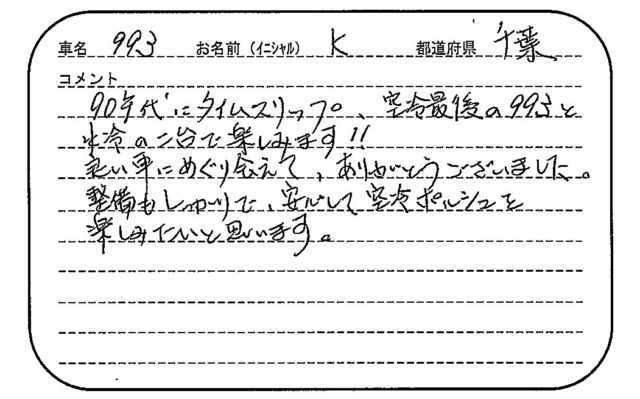 車名 993 お名前(イニシャル) K 都道府県 千葉
コメント
90年代にタイムスリップ。、空冷最後の993と
水冷の二台で楽しみます!!
良い車にめぐり会えて、ありがとうございました。
整備もしっかりで、安心して空冷ポルシェを
楽しみたいと思います。